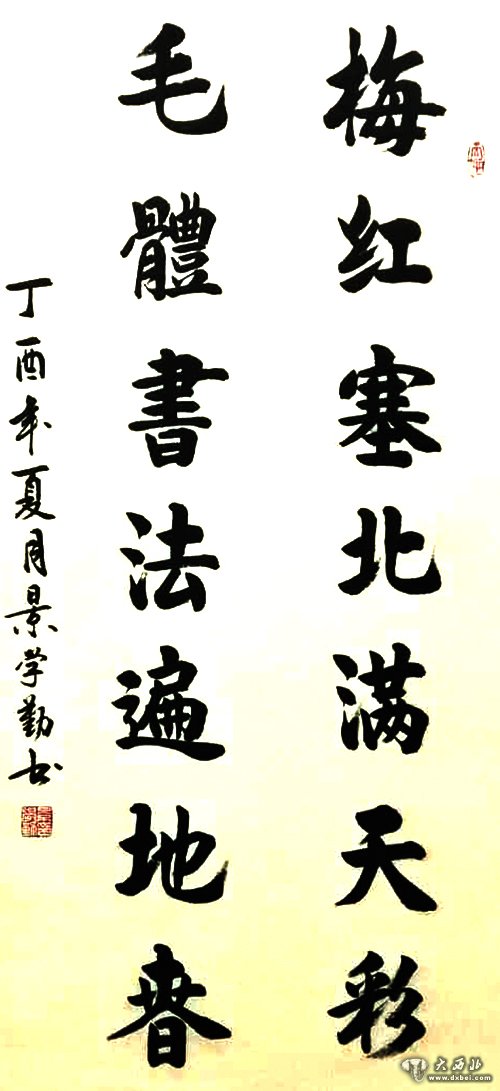 梅红塞北满天彩
毛體書法遍地春
丁酉年夏月景学勤书
大西北
www.dxbei.com